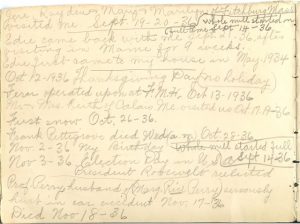 visited me Sept. 19-20-36.
whole mill started on
full time Sept 14-36.
Edie came back with
visiting in Maine for 9 weeks.
Edie first came to my house in May 1934
Oct 12-1936 Thanksgiving Day (no holiday)
Fern operated upon at F.M.H. Oct 13-1936
Mr. & Mrs. Keith of Calais Me. visited us Oct 17-19-36
First snow Oct. 26-36.
Frank Pettegrove died Wed. Oct. 28-36.
Nov-2-36 My Birthday whole mill started full
Nov-3-36 Election Day in U.S.A Sept 14-36
President Roosevelt relected
Perry husband of (Mary Perry) seriously
in car accident Nov. 17-36
Died Nov 18-36